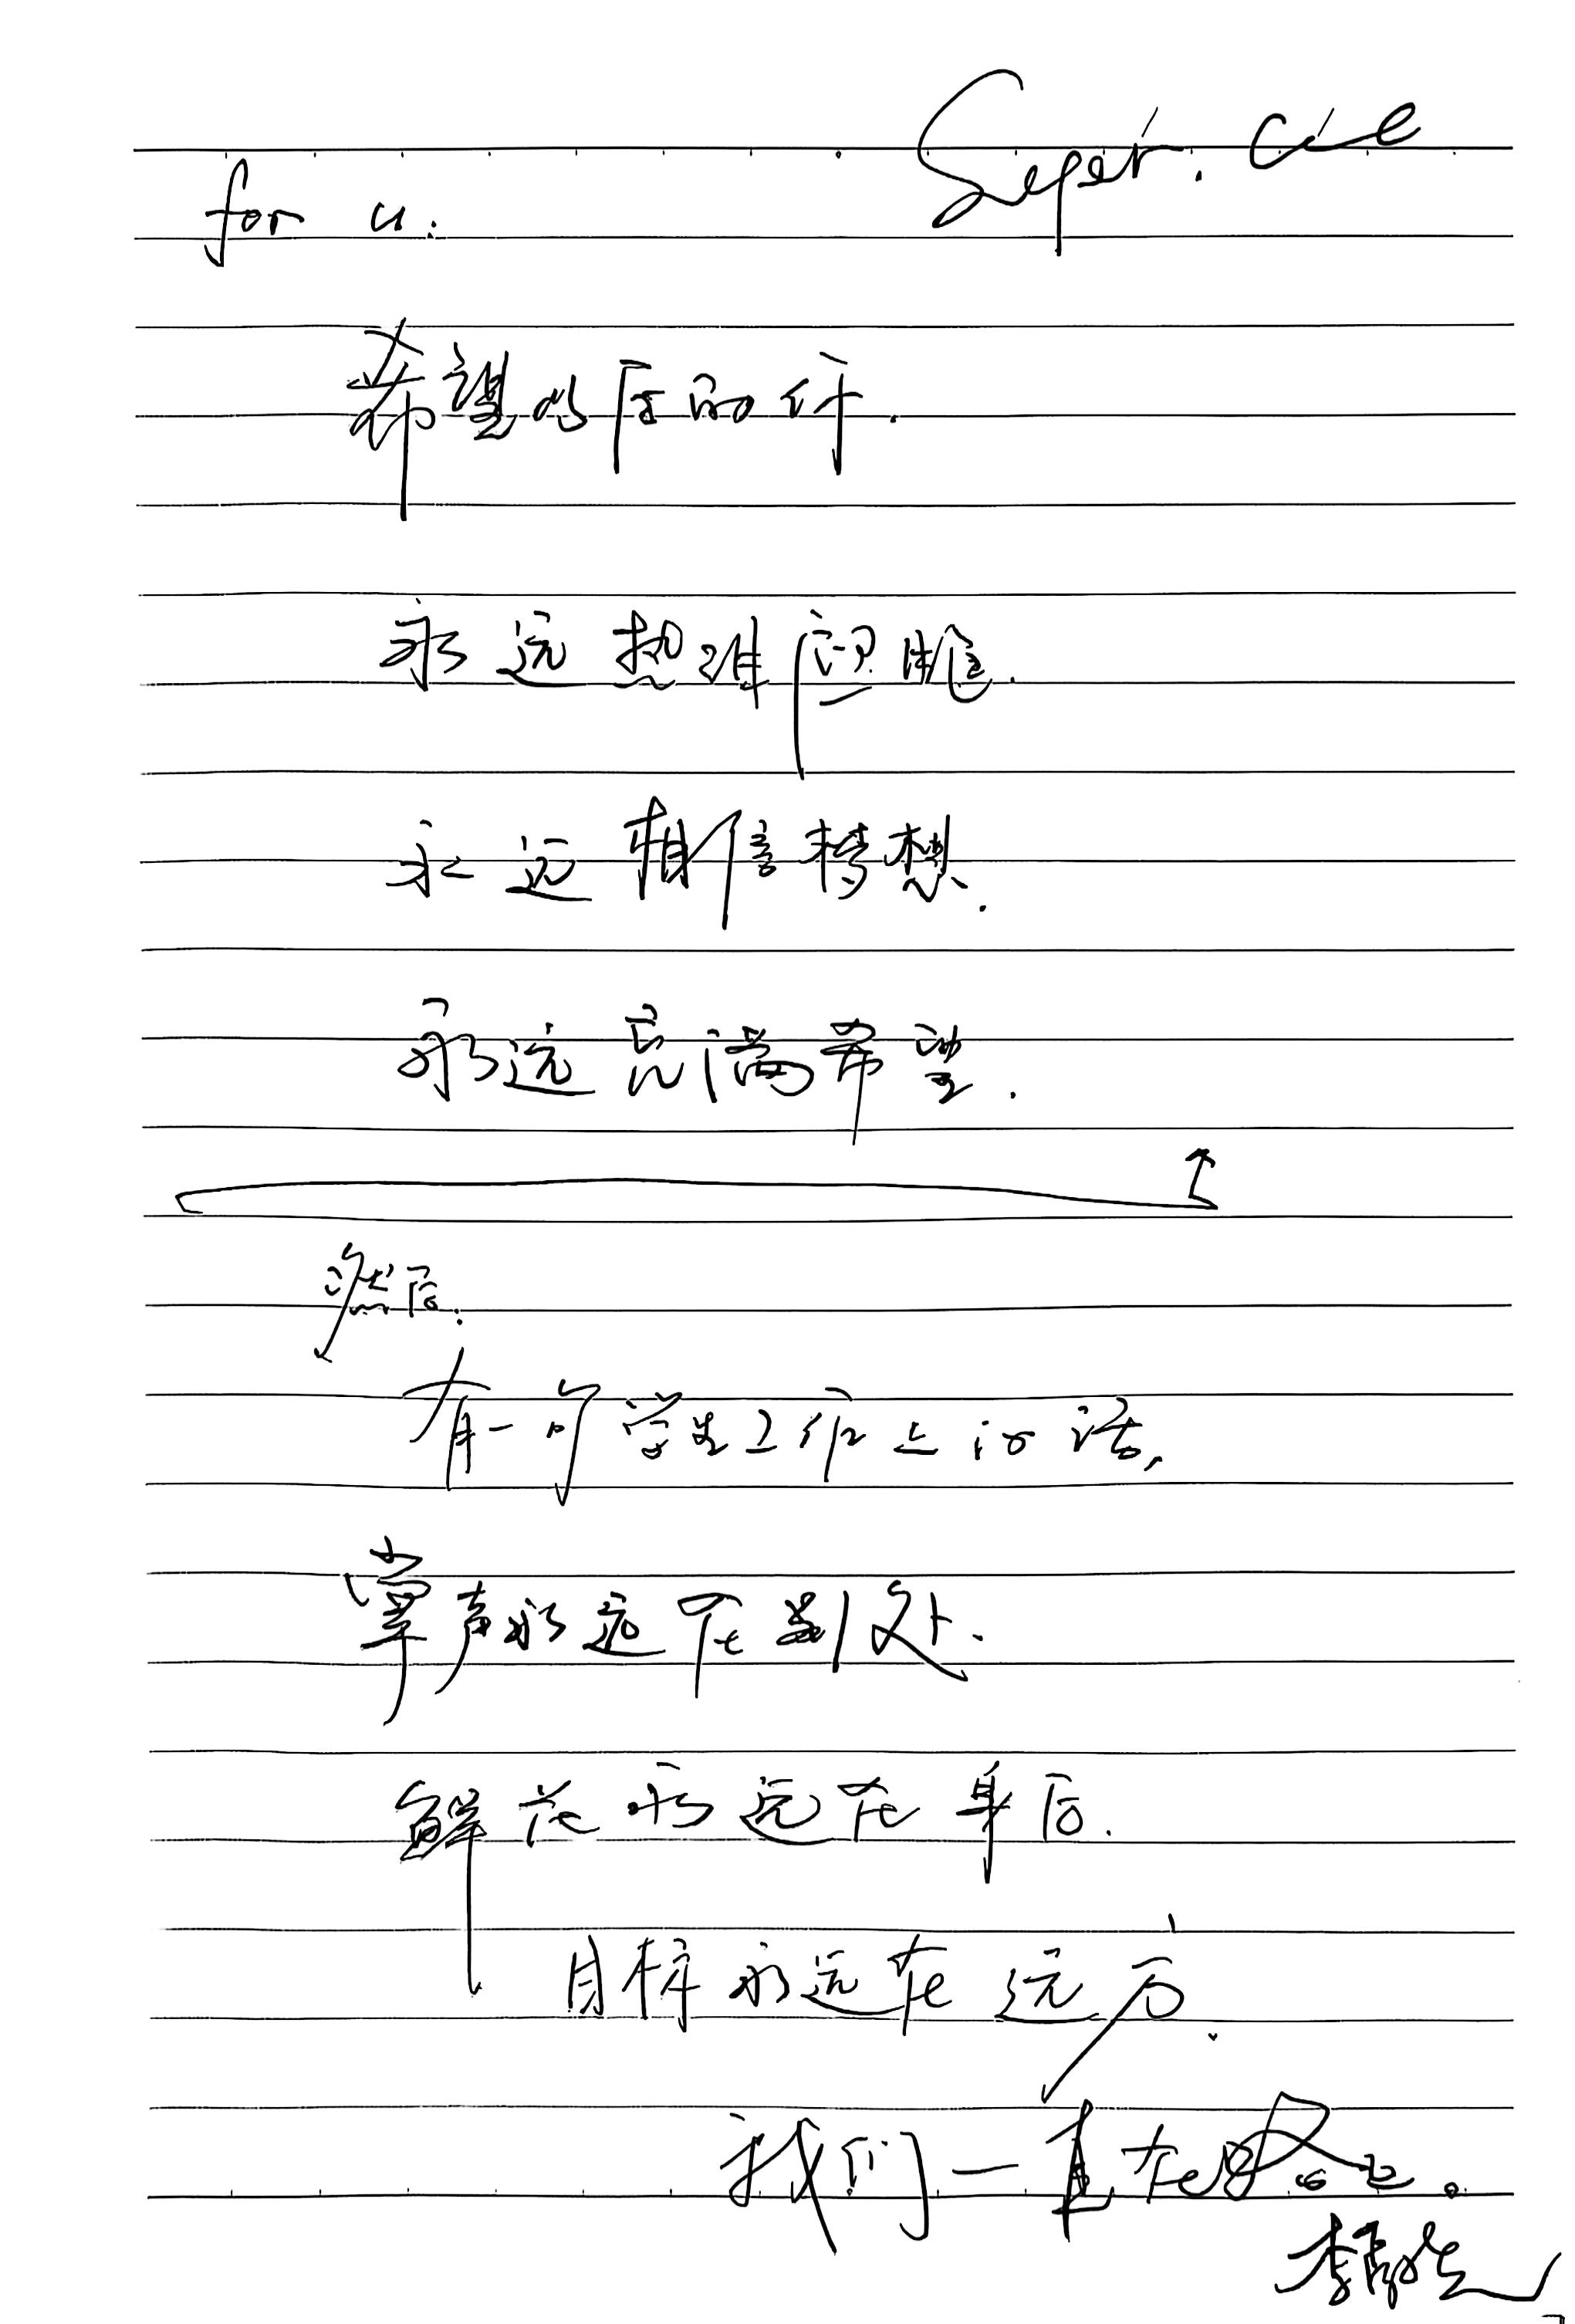 for u:
希望以后的你.
永远热泪盈眶.
永远相信梦想.
永远充满希望.
然后:
有一句学生工作上的话,
掌声永远在别处.
鲜花永远在身后.
目标永远在远方.
我们一直在路上。